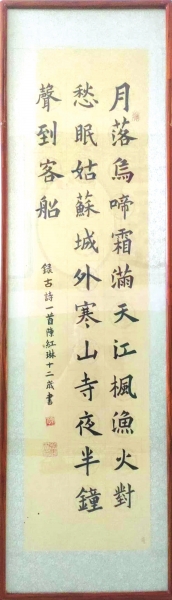 月落烏啼霜滿天江楓漁火對
愁眠姑蘇城外寒山寺夜半鐘
聲到客船
錄古詩一首陳紅琳十二歲書